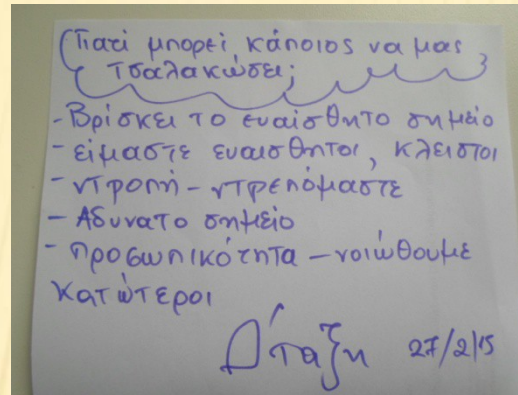 Γιατί μπορεί κάποιος να μας
τσαλακώσει;
- Βρίσκει το ευαίσθητο σημείο
- είμαστε ευαισθητοι, κλειστοι
- ντροπή - ντρεπόμαστε
- Αδυνατο σημείο
- προσωπικότητα - νοιώθουμε
κατώτεροι
Δ' ταξη 27/2/15